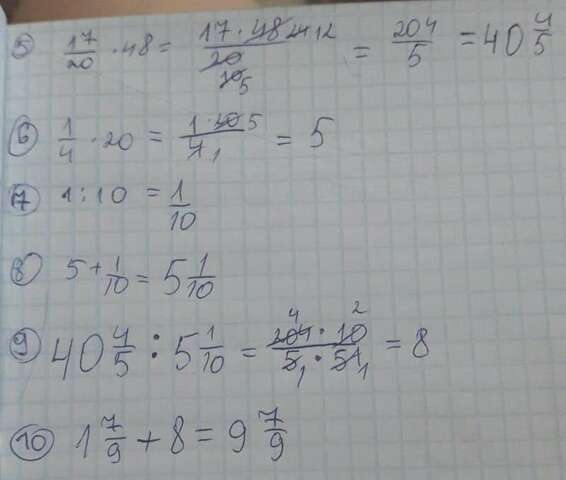 5) 17/20 · 48 = 17 · 48 24 12 / 20 10 5 = 204/5 = 40 4/5
6) 1/4 · 20 = 1 · 20 5 / 4 1 = 5
7) 1 : 10 = 1/10
8) 5 + 1/10 = 5 1/10
9) 40 4/5 : 5 1/10 = 204 4 · 10 2 / 5 1 · 51 1 = 8
10) 1 7/9 + 8 = 9 7/9